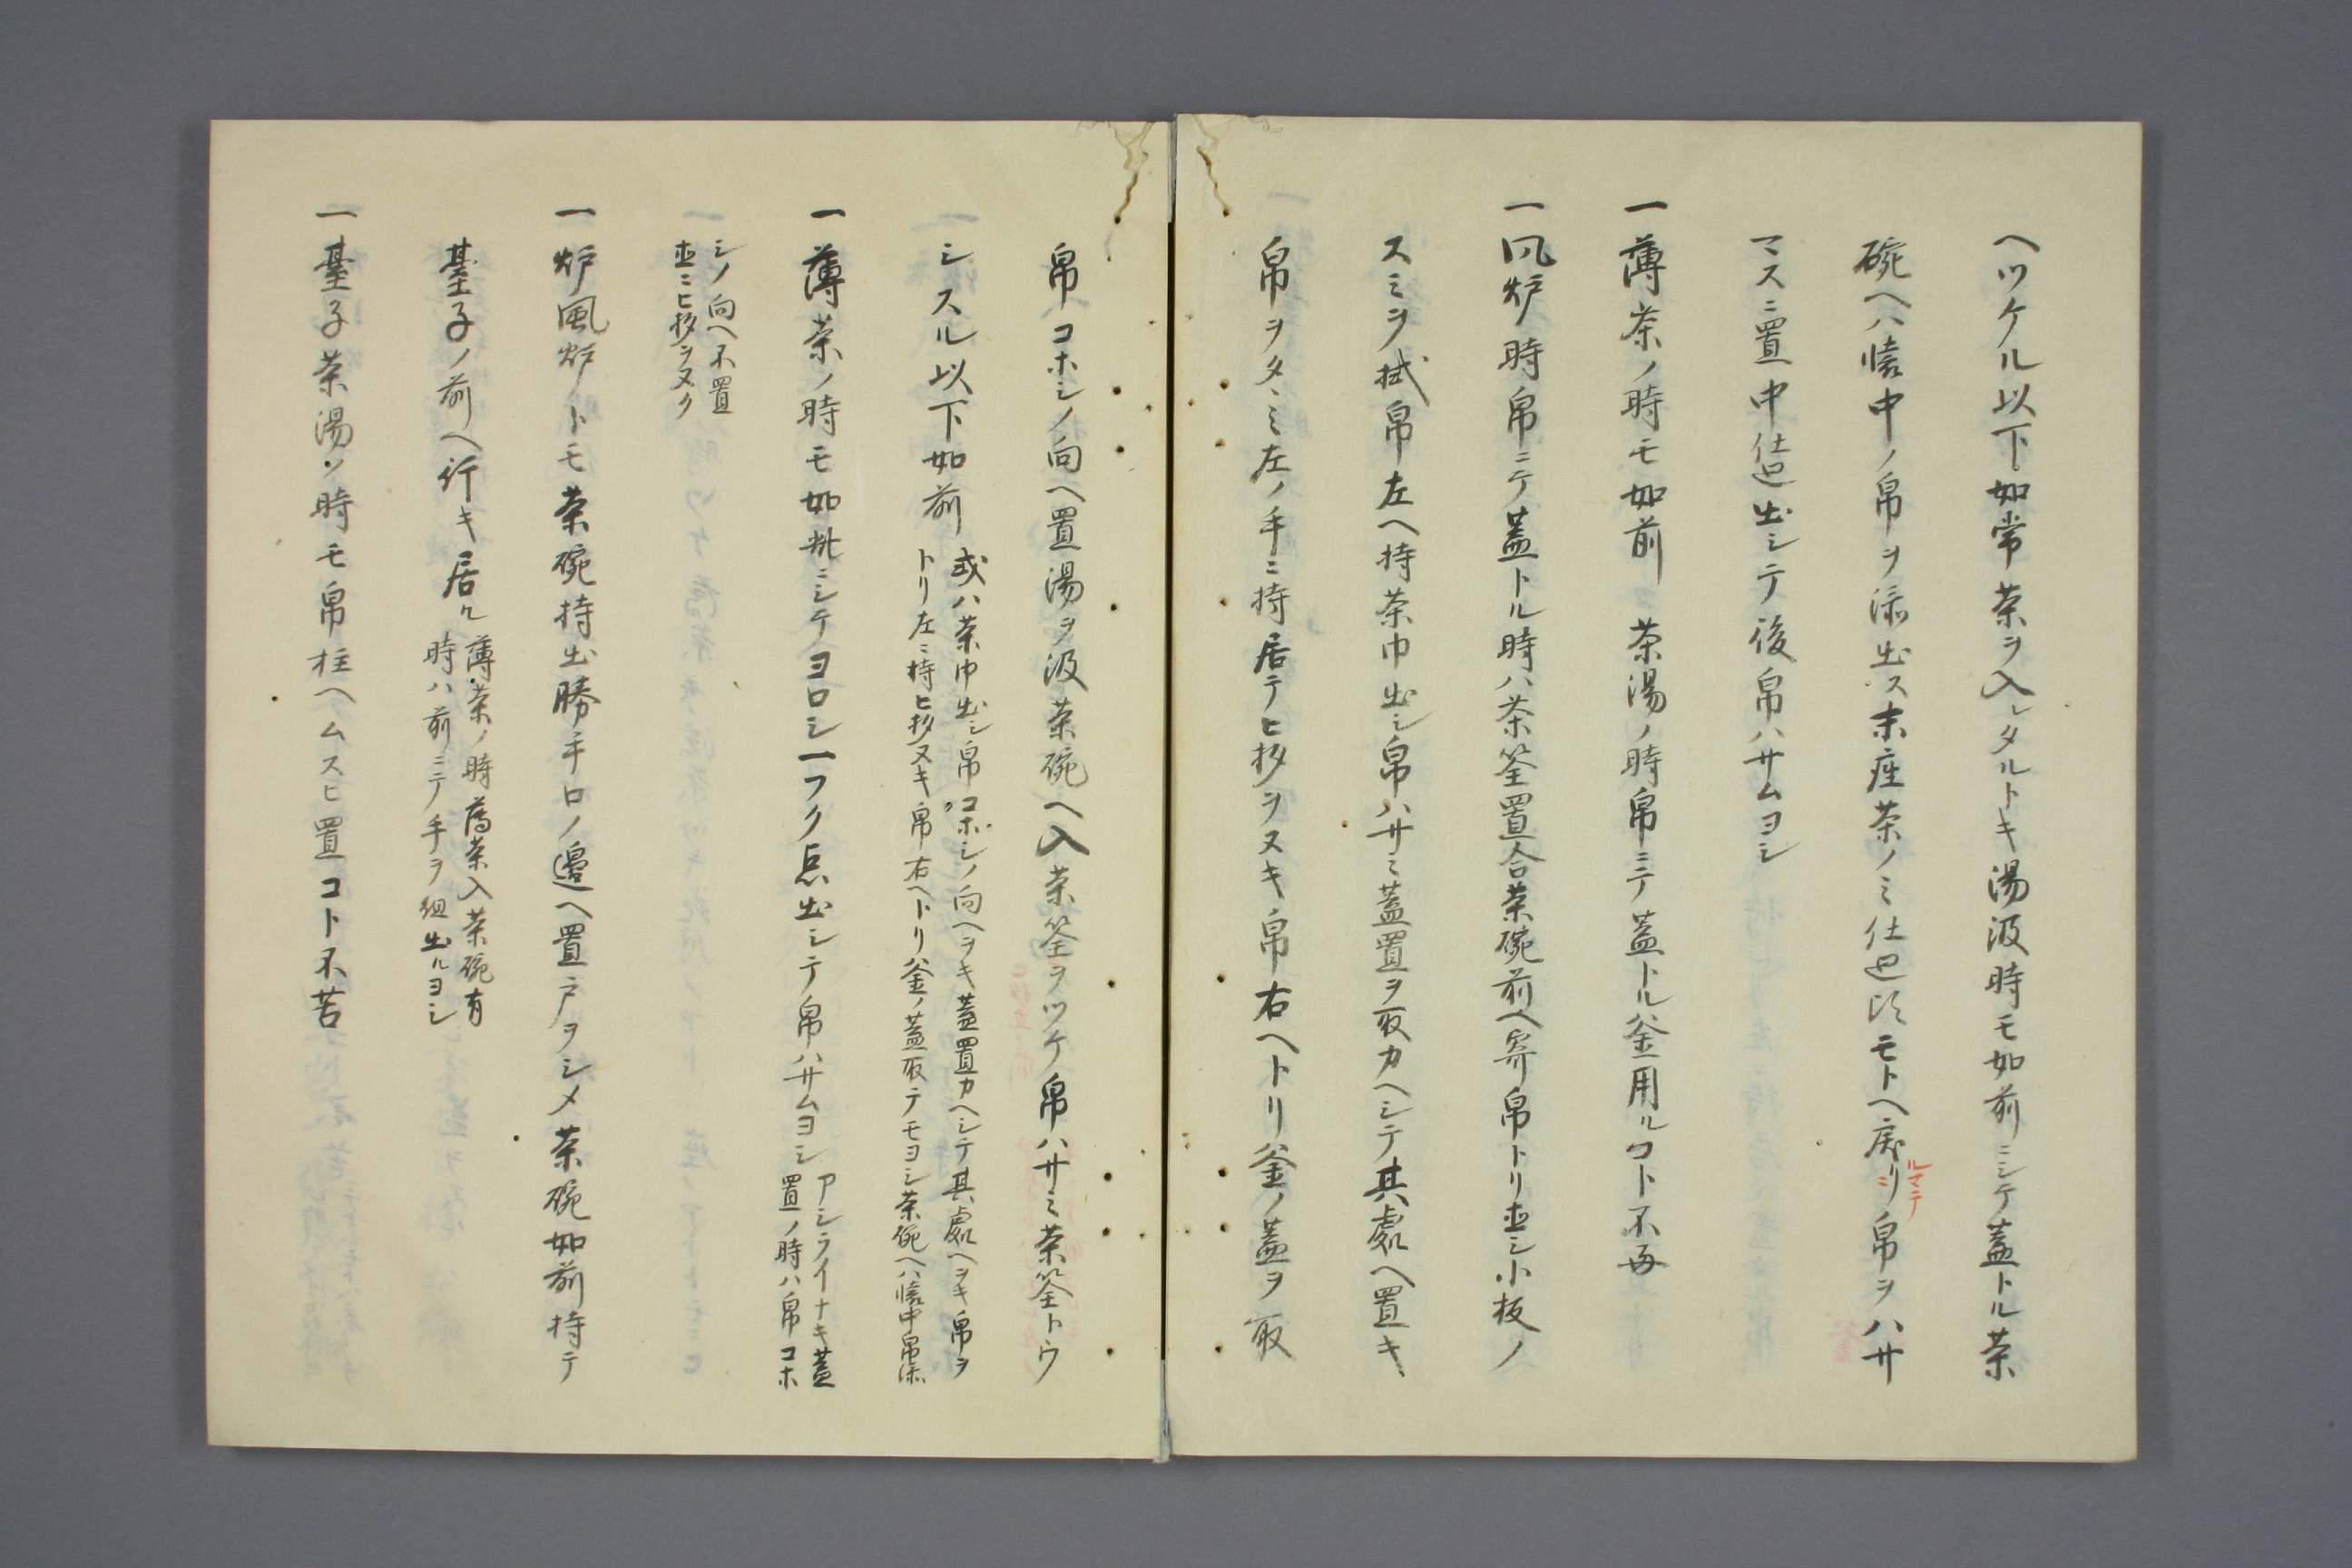 ヘツケル以下如常茶ヲ入レタルトキ湯汲時モ如前ニシテ蓋トル茶
碗ヘハ懐中ノ帛ヲ添出ス末座茶ノミ仕廻ヒモトヘ戻リ帛ヲハサ
ルマテ
マスニ置中仕廻出シテ後帛ハサムヨシ
一薄茶ノ時モ如前 茶湯ノ時帛ニテ蓋トル釜用ルコト不再
一風炉時帛ニテ蓋トル時ハ茶筌置合茶碗前ヘ寄帛トリ並シ小板ノ
スミヲ拭帛左ヘ持茶巾出シ帛ハサミ蓋置ヲ取カヘシテ其處ヘ置キ
帛ヲタヽミ左ノ手ニ持居テヒ拶ヲヌキ帛右ヘトリ釜ノ蓋ヲ取
帛コホシノ向ヘ置湯ヲ汲茶碗ヘ入茶筌ヲツケ帛ハサミ茶筌トウ
シスル以下如前
或ハ茶巾出シ帛コボシノ向ヘヲキ蓋置カヘシテ其處ヘヲキ帛ヲ
トリ左ニ持ヒ拶ヌキ帛右ヘトリ釜ノ蓋取テモヨシ茶碗ヘハ懐中帛添
一薄茶ノ時モ如此ニシテヨロシ一フク点出シテ帛ハサムヨシ
アシライナキ蓋
置ノ時ハ帛コホ
シノ向ヘ不置
並ニヒ拶ラヌク
一炉風炉トモ茶碗持出勝手口ノ邊ヘ置戸ヲシメ茶碗如前持テ
臺子ノ前ヘ行キ居ル
薄茶ノ時薄茶入茶碗有
時ハ前ニテ手ヲ組出ルヨシ
一臺子茶湯ソ時モ帛柱ヘムスヒ置コト不苦